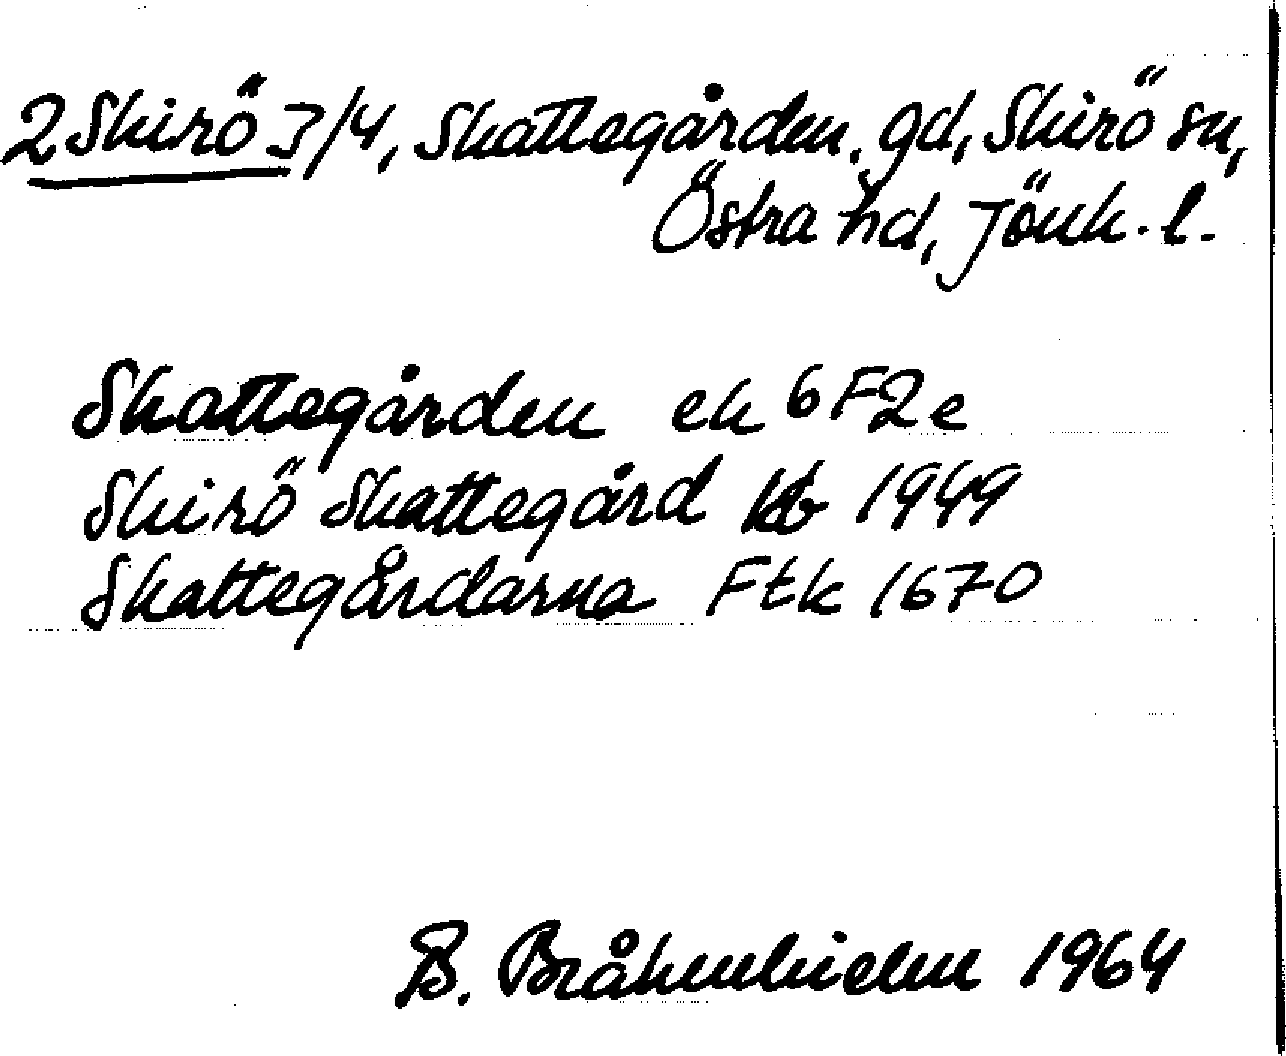 2 Skirö 3/4, Skattegården, gd, Skirö sn,
Östra hd, Jönk. l.
Skattegården ek 6F2e
Skirö Skattegård kb 1949
Skattegårdarna Ftk 1670
B. Bråkenhielm 1964